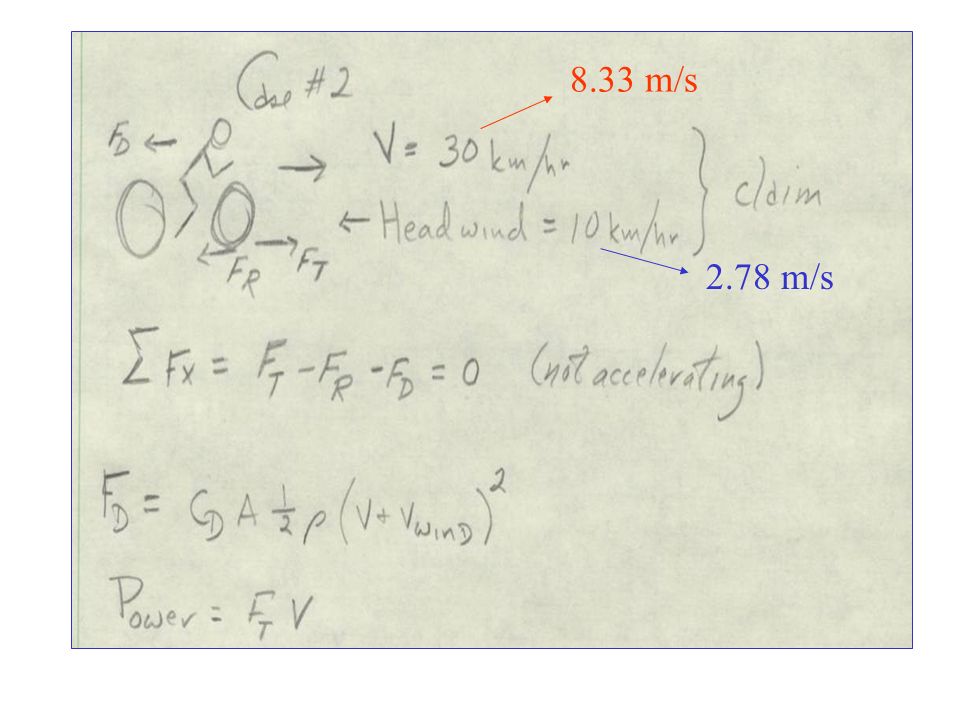 Case #2
8.33 m/s
F_D ←
→ V = 30 km/hr
← Head wind = 10 km/hr } claim
← F_R → F_T
2.78 m/s
ΣFx = F_T - F_R - F_D = 0 (not accelerating)
F_D = C_D A 1/2 ρ (V + V_WIND)^2
Power = F_T V